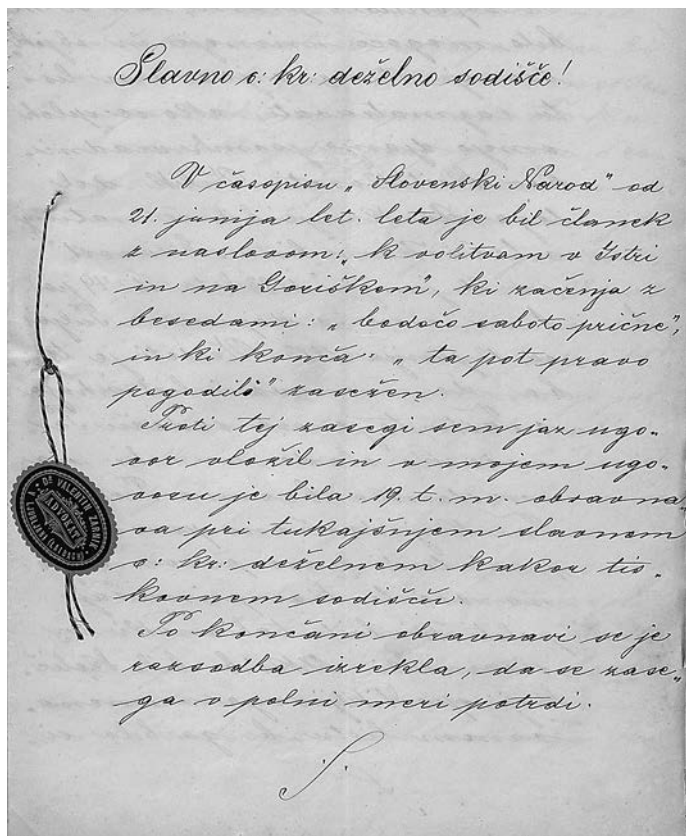 Slavno c: kr: deželno sodišče!
V časopisu „Slovenski Narod" od
21. junija let. leta je bil članek
z naslovom: „k volitvam v Istri
in na Goriškem", ki začenja z
besedami: „bodočo saboto prične",
in ki konča: „ta pot pravo
pogodili" zasežen.
Proti tej zasegi sem jaz ugo„
vor vložil in o mojem ugo„
voru je bila 19. t. m. obravna„
va pri tukajšnjem slavnem
c: kr: deželnem kakor tis„
kovnem sodišču.
Po končani obravnavi se je
razsodba izrekla, da se zase„
ga v polni meri potrdi.
DR VALENTIN ZARNIK
ADVOKAT
V LJUBLJANI (LAIBACH)